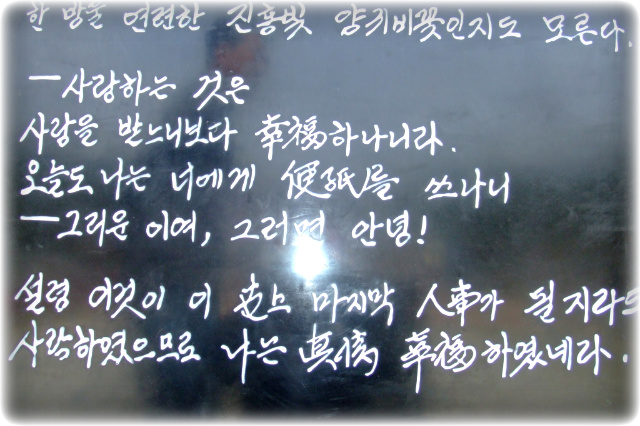 한 방울 연련한 진홍빛 양귀비꽃인지도 모른다.
―사랑하는 것은
사랑을 받느니보다 幸福하나니라.
오늘도 나는 너에게 便紙를 쓰나니
―그리운 이여, 그러면 안녕!
설령 이것이 이 世上 마지막 人事가 될지라도
사랑하였으므로 나는 眞情 幸福하였네라.